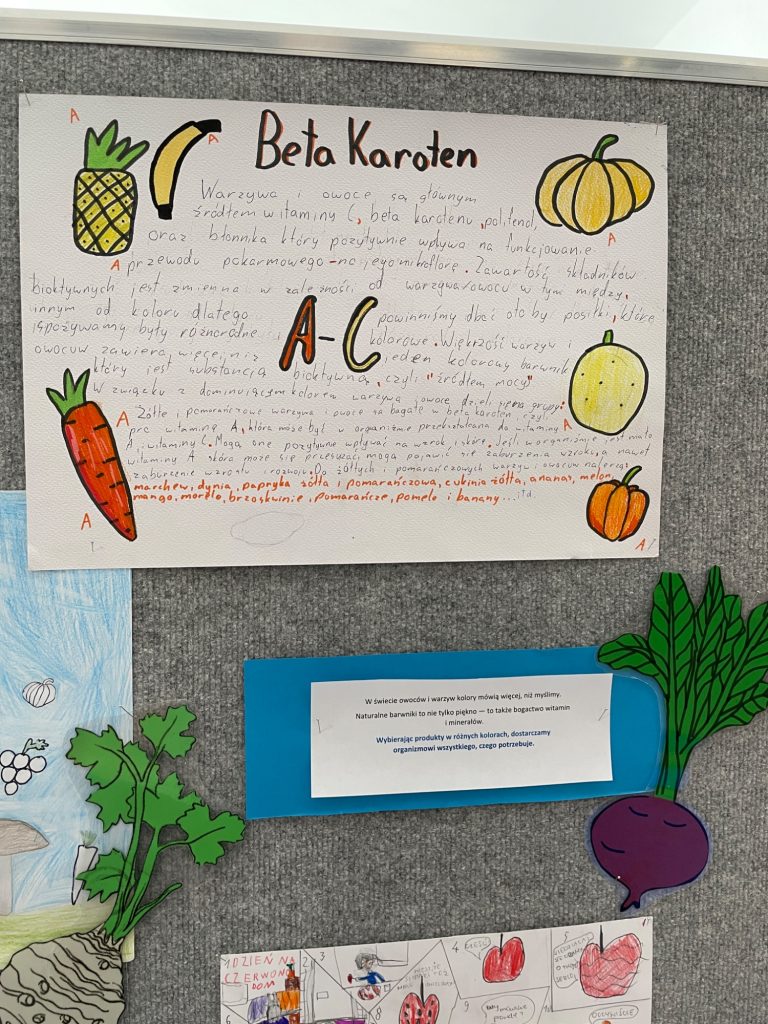 A
A
Beta Karoten
Warzywa i owoce są głównym
źródłem witaminy C, beta karotenu, polifenol,
oraz błonnika który pozytywnie wpływa na funkcjowanie
A
A przewodu pokarmowego - na jego mikroflorę. Zawartość składników
bioktywnych jest zmienna w zależności od warzywa/owocu w tym między,
innym od koloru dlatego powinniśmy dbać oto by posiłki, które
ispożywamy były różnorodne i kolorowe. Większość warzyw i
A-C
owocuw zawiera więcej niż jeden kolorowy barwnik
który jest substancją bioktywną, czyli "źródłem mocy"
W związku z dominującym kolorem warzywa i owoce dzieli się na grupy:
A Żółte i pomarańczowe warzywa i owoce są bogate w beta karoten czyli
pro witaminę A, która może być w organizmie przekształcana do witaminy A
A, i witaminy C. Mogą one pozytywnie wpływać na wzrok i skórę. Jeśli w organizmie jest mało
witaminy A skóra może się przesuszać mogą pojawić się zaburzenia wzroku, a nawet
zaburzenie wzrostu i rozwoju. Do żółtych i pomarańczowych warzyw i owocuw należą:
marchew, dynia, papryka żółta i pomarańczowa, cukinia żółta, ananas, melon,
mango, morelo, brzoskwinie, pomarańcze, pomelo i banany...itd
A
A
W świecie owoców i warzyw kolory mówią więcej, niż myślimy.
Naturalne barwniki to nie tylko piękno — to także bogactwo witamin
i minerałów.
Wybierając produkty w różnych kolorach, dostarczamy
organizmowi wszystkiego, czego potrzebuje.
1 DZIEŃ NA
CZERWONO
DOM
2
3
4
5
6
8
9